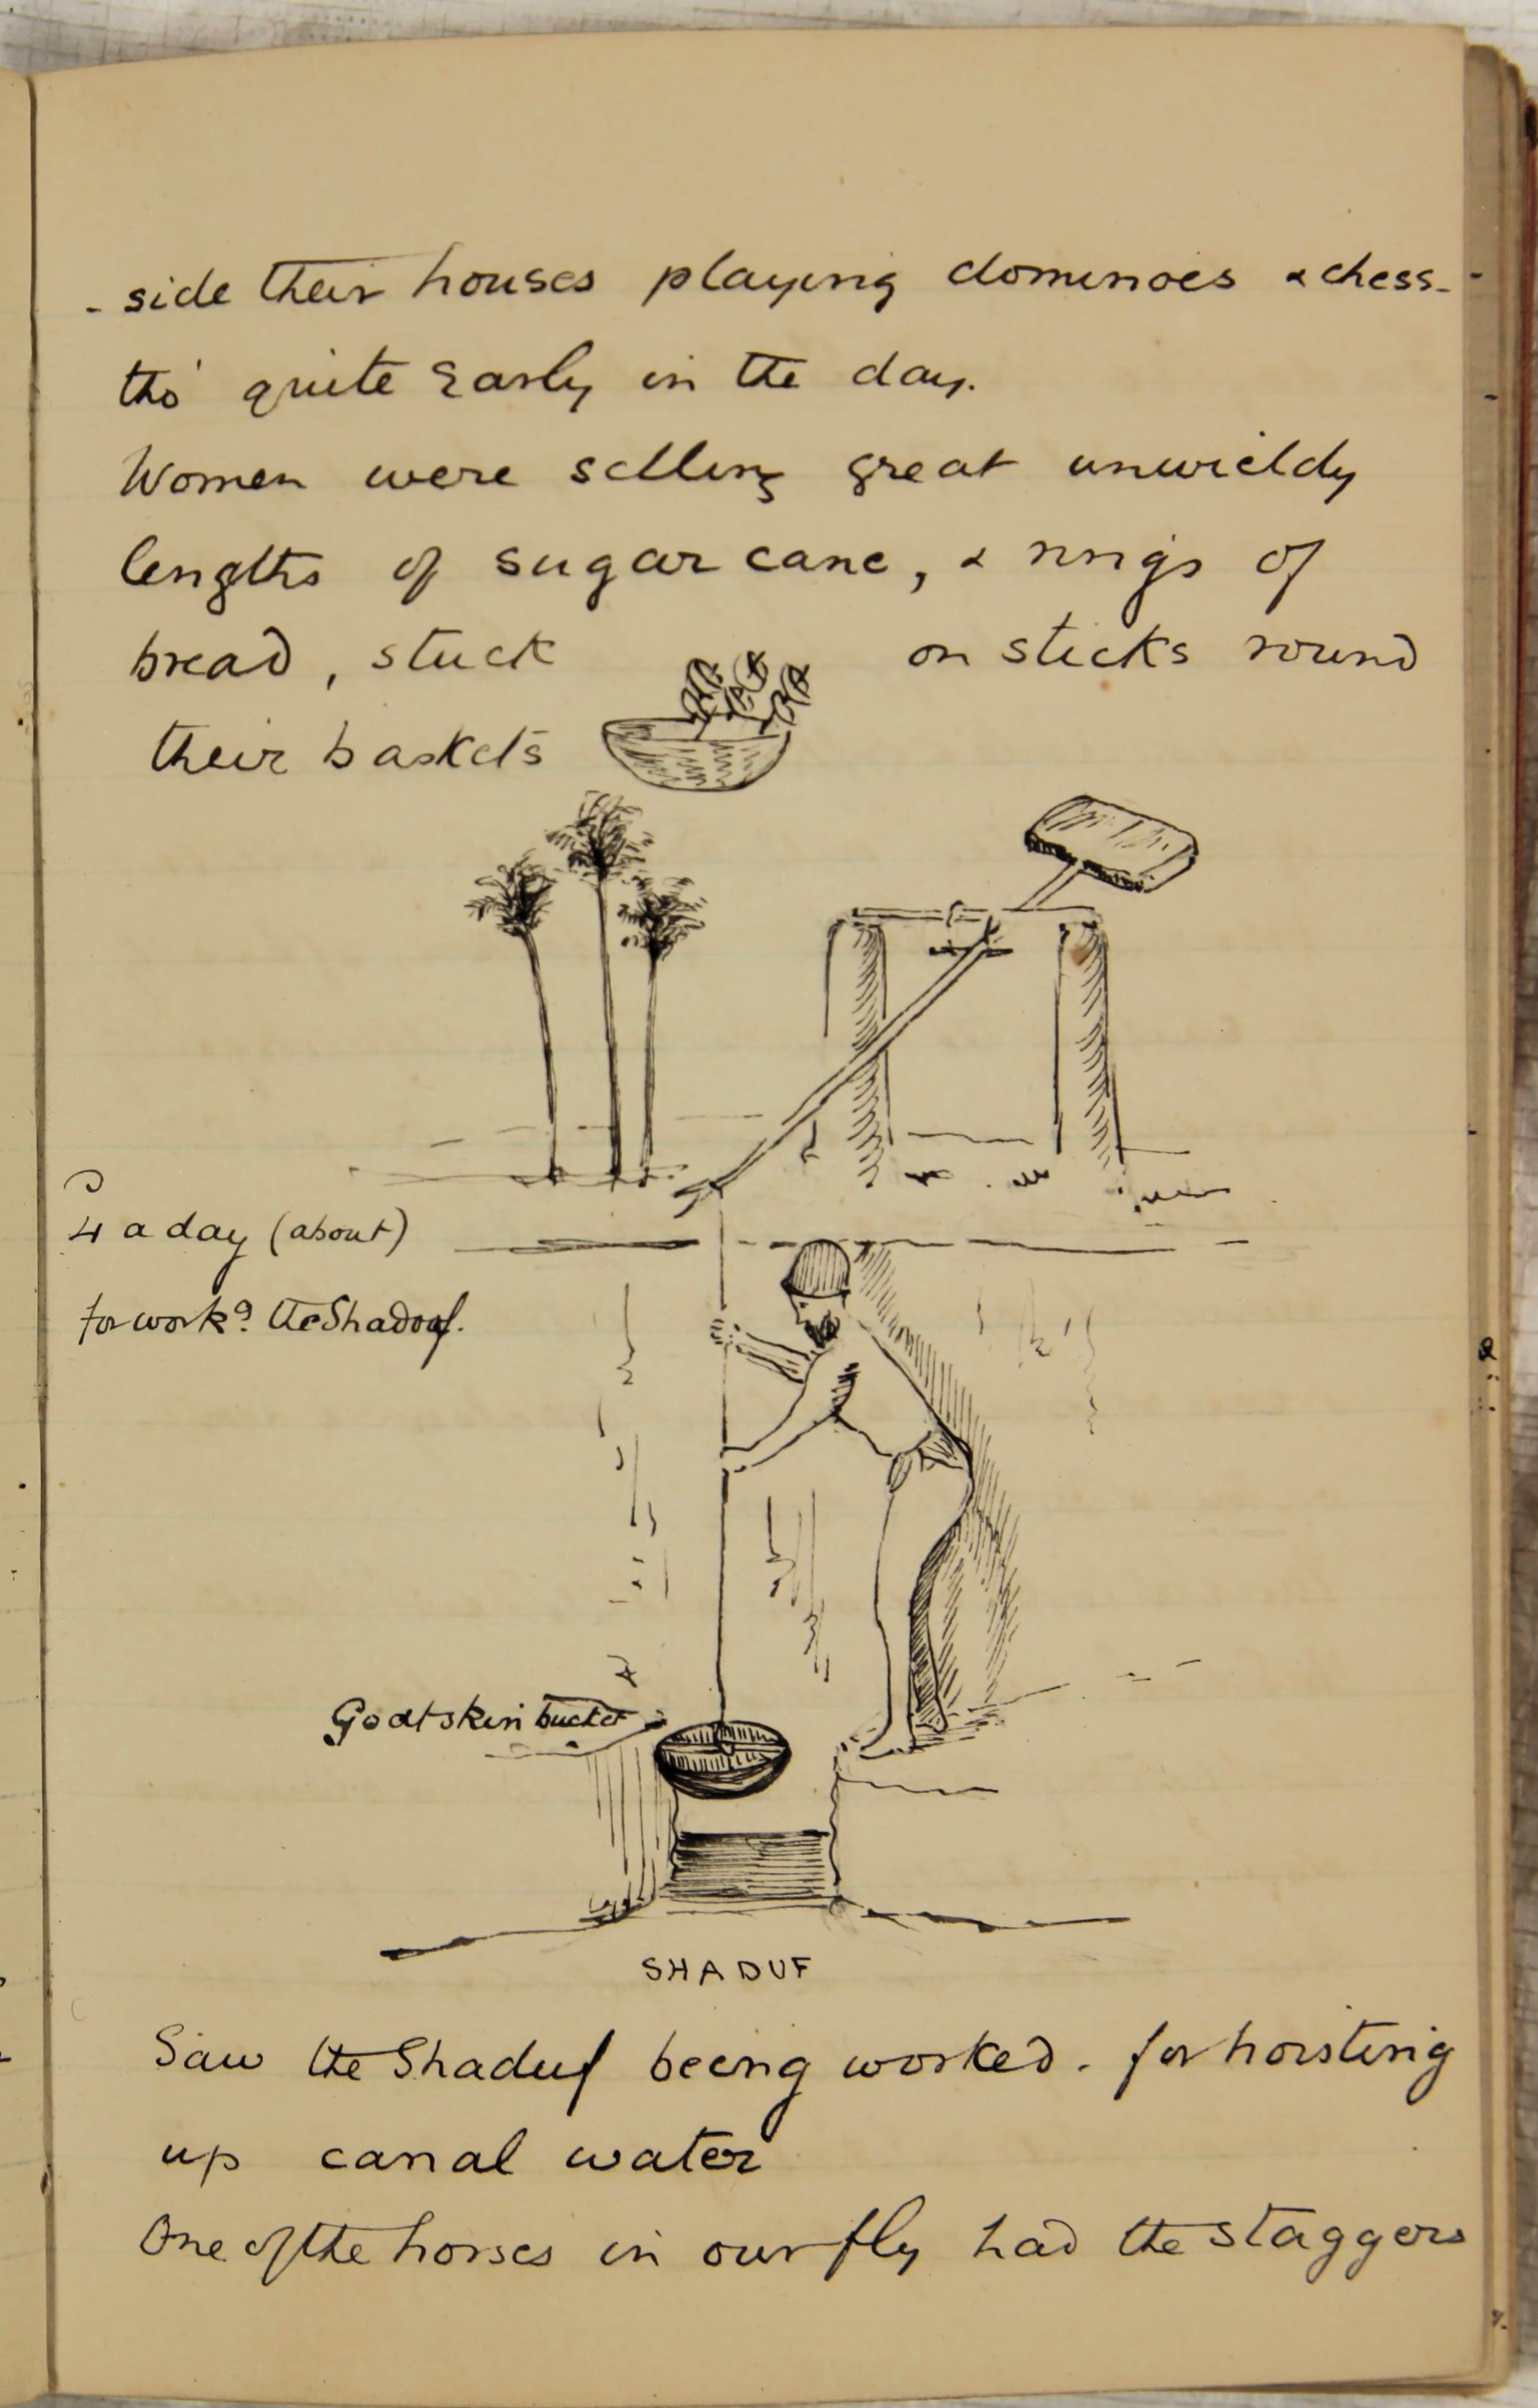 - side their houses playing dominoes & chess -
tho' quite Early in the day.
Women were selling great unwieldy
lengths of sugar cane, & rings of
bread, stuck on sticks round
their baskets
4 a day (about)
for workg. the Shadoof.
Goatskin bucket
SHADUF
Saw the Shaduf being worked. for hoisting
up canal water
One of the horses in our fly had the staggers